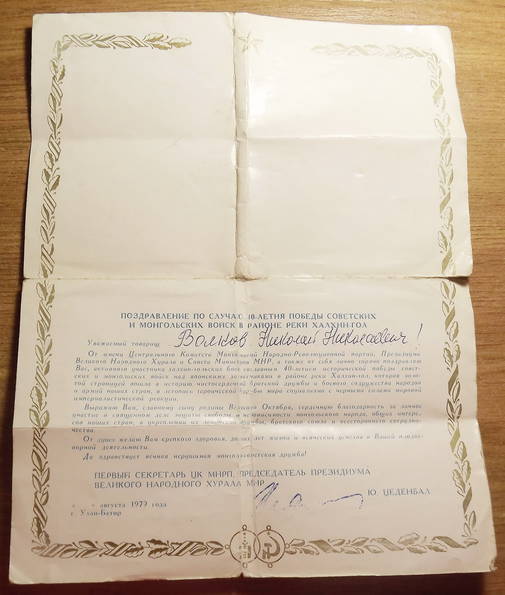 ПОЗДРАВЛЕНИЕ ПО СЛУЧАЮ 40-ЛЕТИЯ ПОБЕДЫ СОВЕТСКИХ
И МОНГОЛЬСКИХ ВОЙСК В РАЙОНЕ РЕКИ ХАЛХИН-ГОЛ
Уважаемый товарищ Волков Николай Николаевич!
От имени Центрального Комитета Монгольской Народно-Революционной партии, Президиума
Великого Народного Хурала и Совета Министров МНР, а также от себя лично горячо поздравляю
Вас, активного участника халхин-гольских боев с славным 40-летием исторической победы совет-
ских и монгольских войск над японскими захватчиками в районе реки Халхин-гол, которая золо-
той страницей вошла в историю нашей братской дружбы и боевого содружества народов
и армий наших стран, в летопись героической борьбы мира социализма с черными силами мировой
империалистической реакции.
Выражаю Вам, славному сыну родины Великого Октября, сердечную благодарность за личное
участие в священном деле защиты свободы и независимости монгольского народа, общих интере-
сов наших стран, в укреплении их дружбы, братского союза и всестороннего сотрудни-
чества.
От души желаю Вам крепкого здоровья, долгих лет жизни и всяческих успехов в Вашей плодот-
ворной деятельности.
Да здравствует вечная нерушимая монголо-советская дружба!
ПЕРВЫЙ СЕКРЕТАРЬ ЦК МНРП, ПРЕДСЕДАТЕЛЬ ПРЕЗИДИУМА
ВЕЛИКОГО НАРОДНОГО ХУРАЛА МНР
Ю. ЦЕДЕНБАЛ
августа 1979 года
г. Улан-Батор